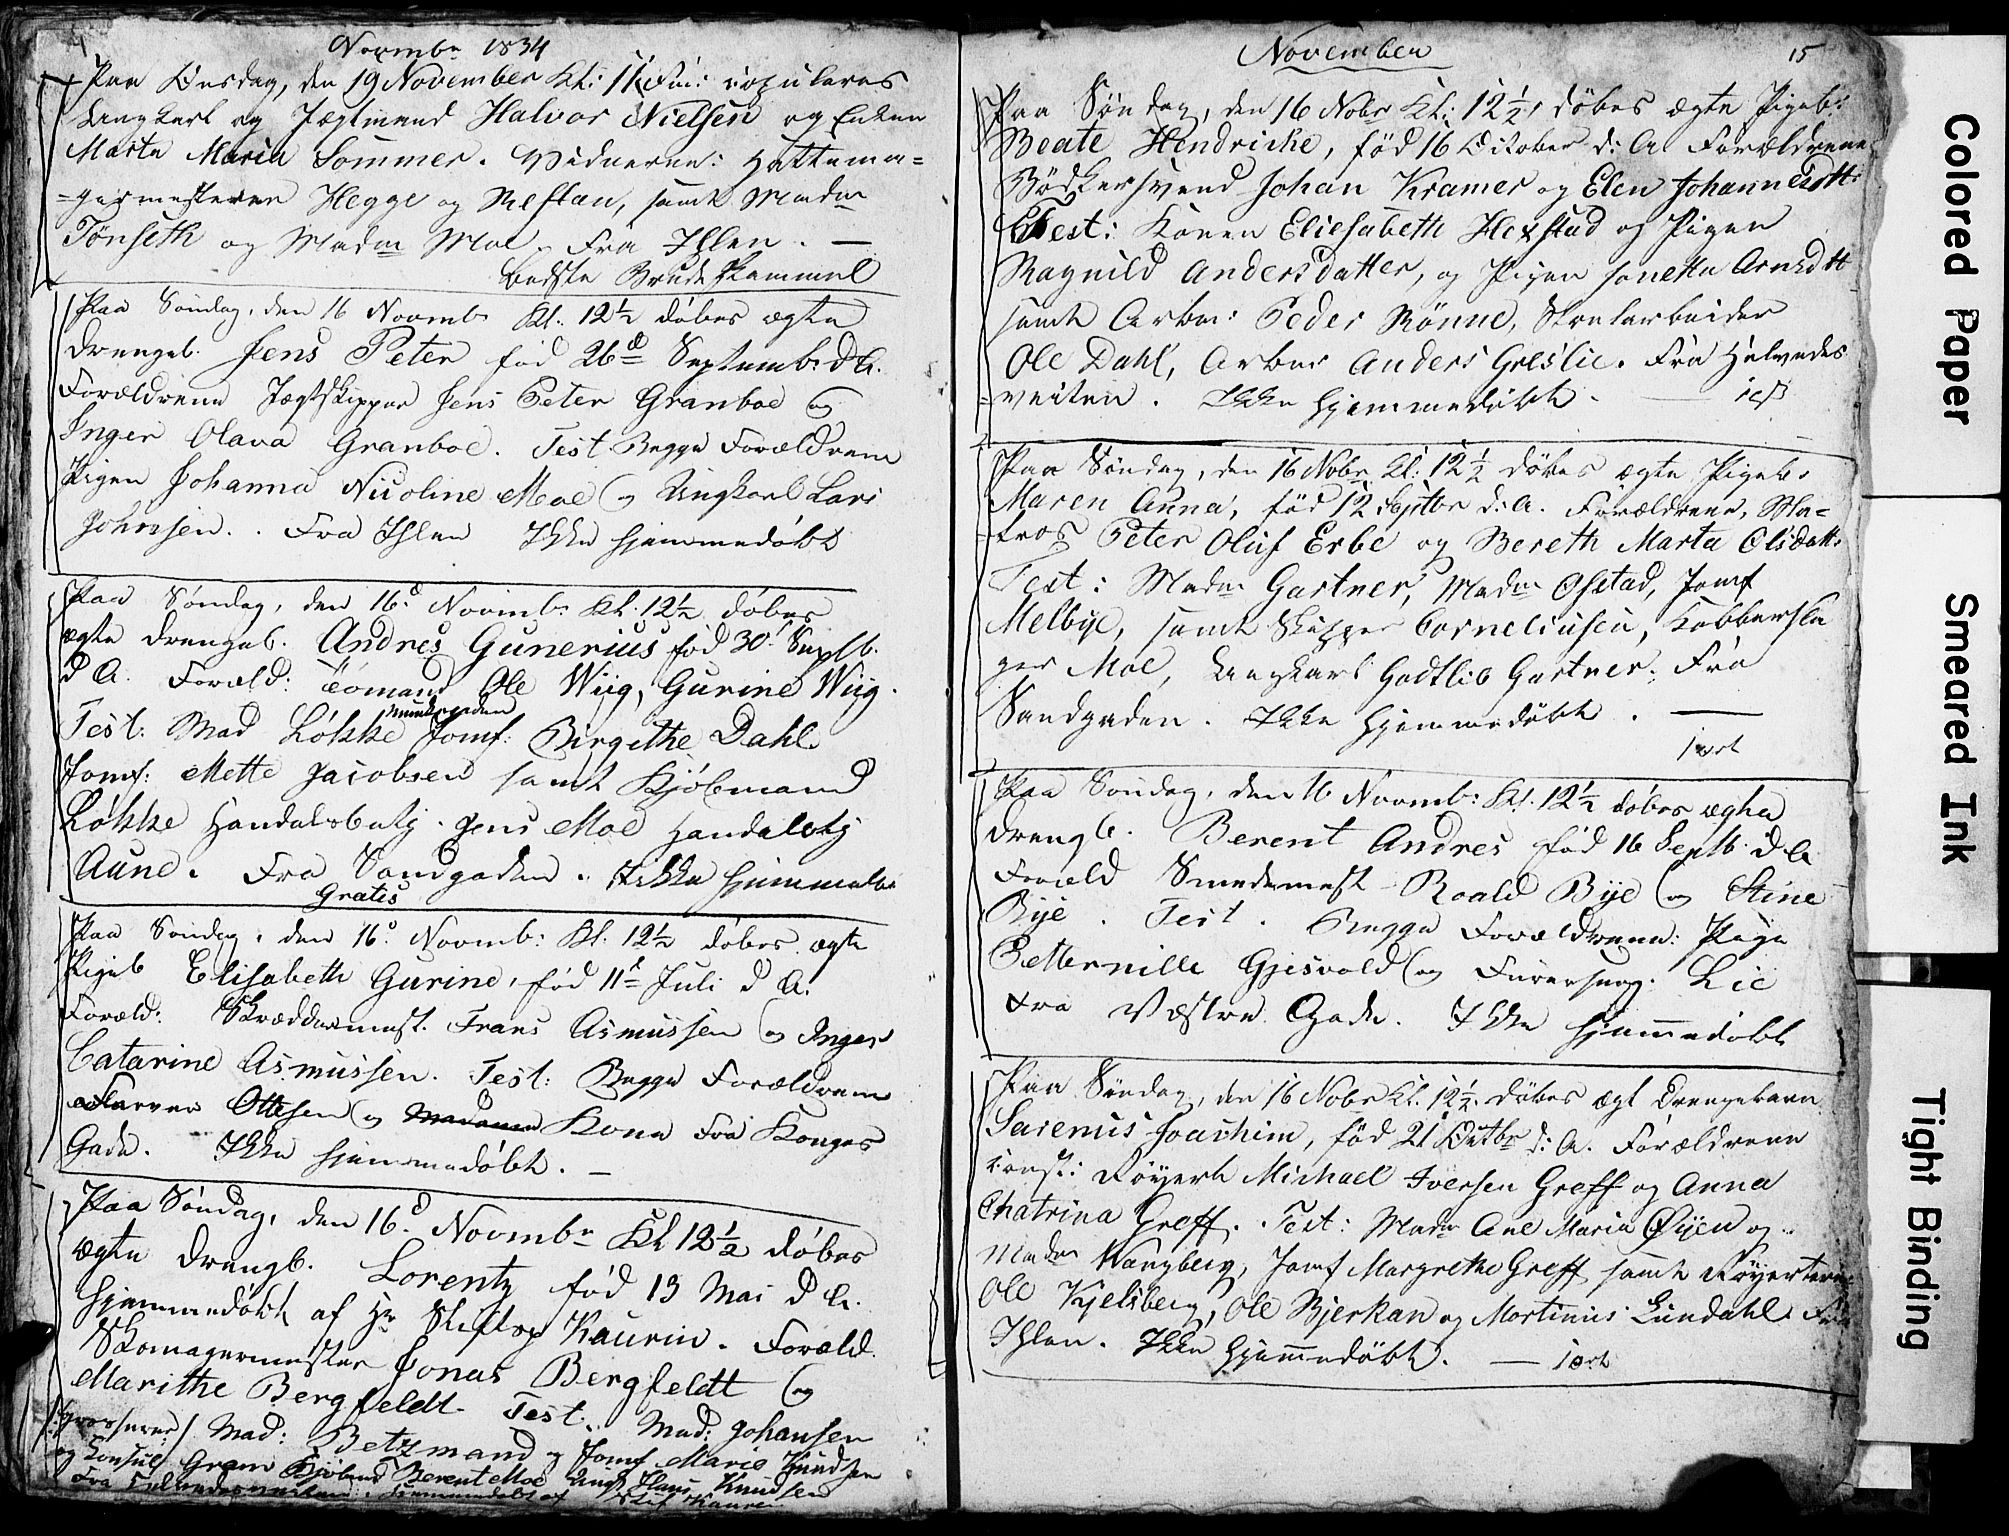 Novembr 1834
Paa Onsdag, den 19 November Kl: 11 Fm: copuleres
Ungkarl og Jægtmand Halvor Nielsen og Enken
Marta Maria Sommer. Vidnerne: Hattema-
-germesteren Hegge og Reflau, samt Madm
Tønseth og Madm Moe. Fra Ihlen. —
bedste Brudeskammel
Paa Søndag, den 16 Novemb. Kl: 12½ døbes ægte
Drengeb. Jens Peter fød 26d Septemb. d. A.
Forældrene Jægtskipper Jens Peter Granboe og
Inger Olava Granboe. Test. Begge Forældrene
Pigen Johanna Nicoline Moe og Ungkarl Lars
Johnsen. . Fra Ihlen Ikke hjemmedøbt
Paa Søndag, den 16d Novemb. Kl. 12½ døbes
ægte Drengeb. Andres Gunerius fød 30. Septb.
d A. Foræld: Tømand Ole Wiig, Gurine Wiig.
Munkegaden
Test. Mad Løkke Jomf: Birgithe Dahl.
Jomf: Mette Jacobsen samt Kjøbmand
Løkke Handelsbetj. Jens Moe Handelsbtj
Aune. Fra Sandgaden. Ikke hjemmedøbt
Gratis
Paa Søndag, den 16d Novemb: Kl. 12½ døbes ægte
Pigeb Elisabeth Gurine, fød 11t Juli d A.
Foræld: Skræddermest. Frans Asmussen og Inger
Catarine Asmussen. Test: Begge Forældrene
Farver Ottesen og Madamm Kone Fra Konges
Gade. Ikke hjemmedøbt. —
Paa Søndag, den 16d Novembr Kl 12½ døbes
ægte Drengb. Lorentz fød 13 Mai d A.
hjemmedøbt af Hr Stiftsp Kaurin. Foræld.
Skomagermester Jonas Bergfeldt og
Marithe Bergfeldt. Test. Mad: Johansen
Mad: Betzmand og Jomf Marie Knudsen
og Konsul Gram Kjøbmd Berent Moe Ungk Hans Knudsen
November 15
Paa Søndag, den 16 Nobr Kl: 12½, døbes ægte Pigeb:
Beate Hendricke, fød 16 October d: A Forældrene
Bødkersvend Johan Kramer og Elen Johannesdtt:
Test: Konen Eliesabeth Hexstad og Pigen
Ragnild Andersdatter, og Pigen Janetta Arnsdtt
samt Arbm: Peder Rønne, Skolarbeider
Ole Dahl, Arbm Anders Greslie. Fra Helvedes
-veiten. Ikke hjemmedøbt. —
Paa Søndag, den 16 Nobr Kl: 12½ døbes ægte Pigeb.
Maren Anna, fød 12 Septbr d: A. Forældrene, Ma-
-tros Peter Oluf Erbe og Bereth Marta Olsdatt:
Test: Madm Gartner, Madm Ofstad, Jomf
Melbye, samt Skipper Corneliusen, Kobbersla
ger Moe, Ungkarl Godtlib Gartner. Fra
Sandgaden. Ikke hjemmedøbt. —
1 ort
Paa Søndag, den 16 Novemb: Kl. 12½ døbes ægte
Drengb. Berent Andres fød 16 Septb. d A
Foræld Smedemest Roald Bye og Stine
Bye. Test. Begge Forældrene: Pige
Petternille Gjesvold og Furersterg. Lie
Fra Vestre Gade. Ikke hjemmedøbt.
Paa Søndag, den 16 Nobr Kl. 12½. døbes ægt Drengebarn
Sarenus Joachim, fød 21 Octbr d: A. Forældrene
const: Røyert Michael Iversen Greff og Anna
Chatrina Greff. Test: Madm Ane Maria Øyen og
Madm Wangberg, Jomf Margrethe Greff samt Røyerterne
Ole Kjelsberg, Ole Bjerkan og Mortinus Lundahl. Fra
Ihlen. Ikke hjemmedøbt. — 1 ort
Colored Paper
Smeared Ink
Tight Binding